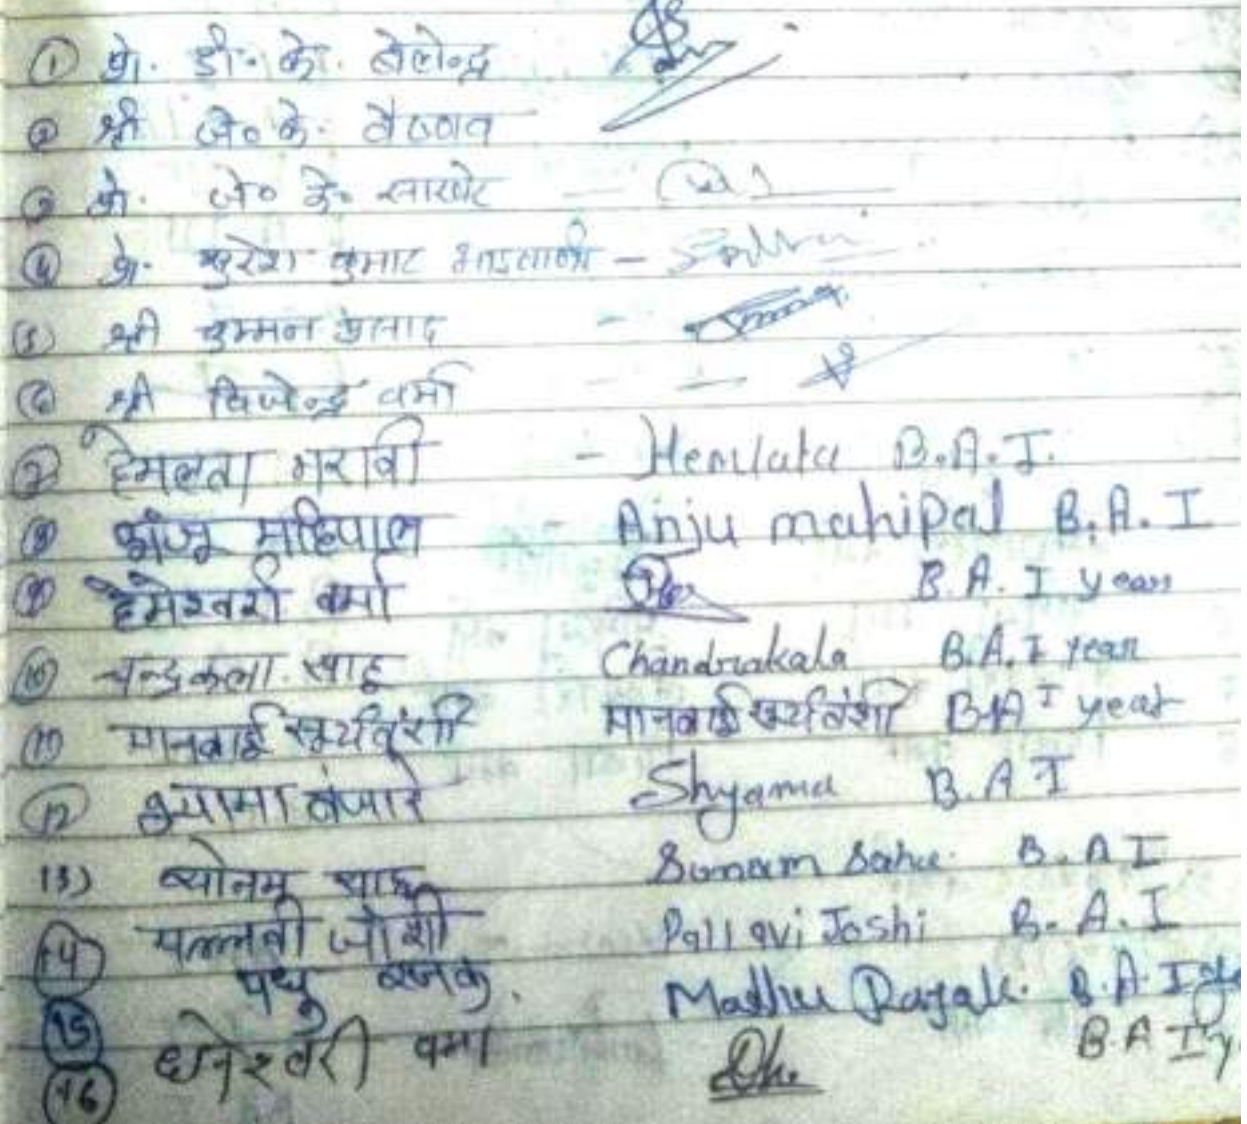 ① प्रो. डी. के. बेलेन्द्र
② श्री जे० के. वैष्णव
③ प्रो. जे० के० साखरे
④ प्रो. सुरेश कुमार -
⑤ श्री चुम्मन प्रसाद -
⑥ श्री विजेन्द्र वर्मा - -
⑦ हेमलता मरावी - Hemlata B.A.I.
⑧ अंजू महिपाल - Anju mahipal B.A. I
⑨ हेमेश्वरी वर्मा B.A. I year
⑩ चन्द्रकला साहू Chandrakala B.A. I year
⑪ मानबाई सूर्यवंशी मानबाई सूर्यवंशी B.A I year
⑫ श्यामा बंजारे Shyama B.A I
13) सोनम साहू Sonam Sahu. B.A I
⑭ पल्लवी जोशी Pallavi Joshi B.A.I
⑮ मधु रजक. Madhu Rajak. B.A. I
⑯ धनेश्वरी वर्मा Dh. B.A I y.